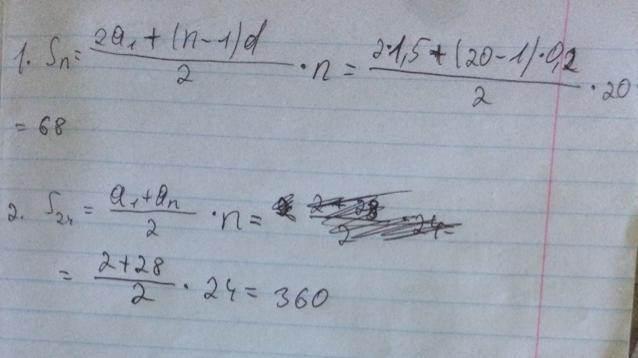 1. Sₙ = (2a₁ + (n-1)d)/2 · n = (2·1,5 + (20-1)·0,2)/2 · 20
= 68
2. S₂₄ = (a₁+aₙ)/2 · n =
= (2+28)/2 · 24 = 360